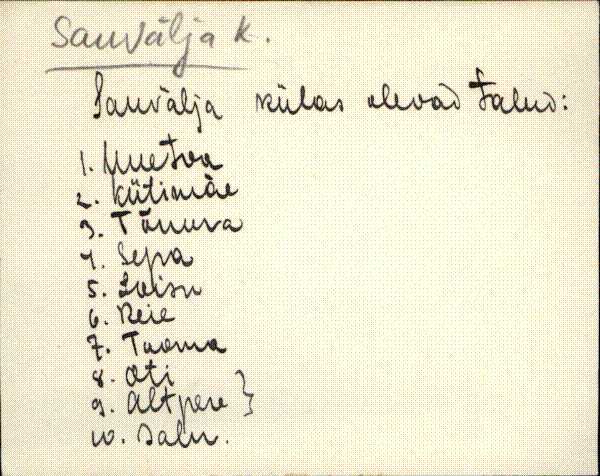 Sauvälja k.
Sauvälja külas olevad talud:
1. Muetoa
2. Kütimäe
3. Tõnuva
4. Sepa
5. Loisu
6. Reie
7. Tooma
8. Oti
9. Altpere }
10. Salu.